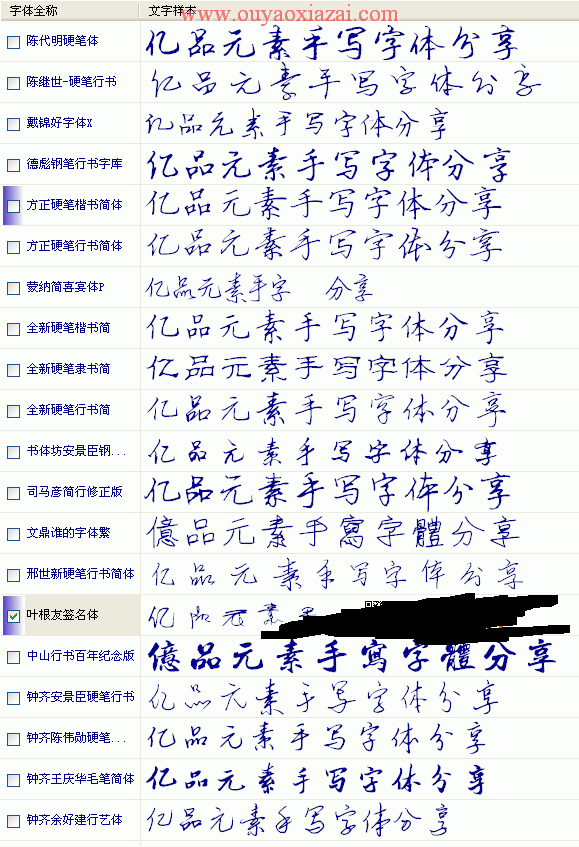 字体全称 文字样本
www.ouyaoxiazai.com
陈代明硬笔体 亿品元素手写字体分享
陈继世-硬笔行书 亿品元素手写字体分享
戴锦好字体X 亿品元素手写字体分享
德彪钢笔行书字库 亿品元素手写字体分享
方正硬笔楷书简体 亿品元素手写字体分享
方正硬笔行书简体 亿品元素手写字体分享
蒙纳简喜宴体P 亿品元素手字 分享
全新硬笔楷书简 亿品元素手写字体分享
全新硬笔隶书简 亿品元素手写字体分享
全新硬笔行书简 亿品元素手写字体分享
书体坊安景臣钢... 亿品元素手写字体分享
司马彦简行修正版 亿品元素手写字体分享
文鼎谁的字体繁 億品元素手寫字體分享
邢世新硬笔行书简体 亿品元素手写字体分享
叶根友签名体 亿品元素
中山行书百年纪念版 億品元素手寫字體分享
钟齐安景臣硬笔行书 亿品元素手写字体分享
钟齐陈伟勋硬笔... 亿品元素手写字体分享
钟齐王庆华毛笔简体 亿品元素手写字体分享
钟齐余好建行艺体 亿品元素手写字体分享